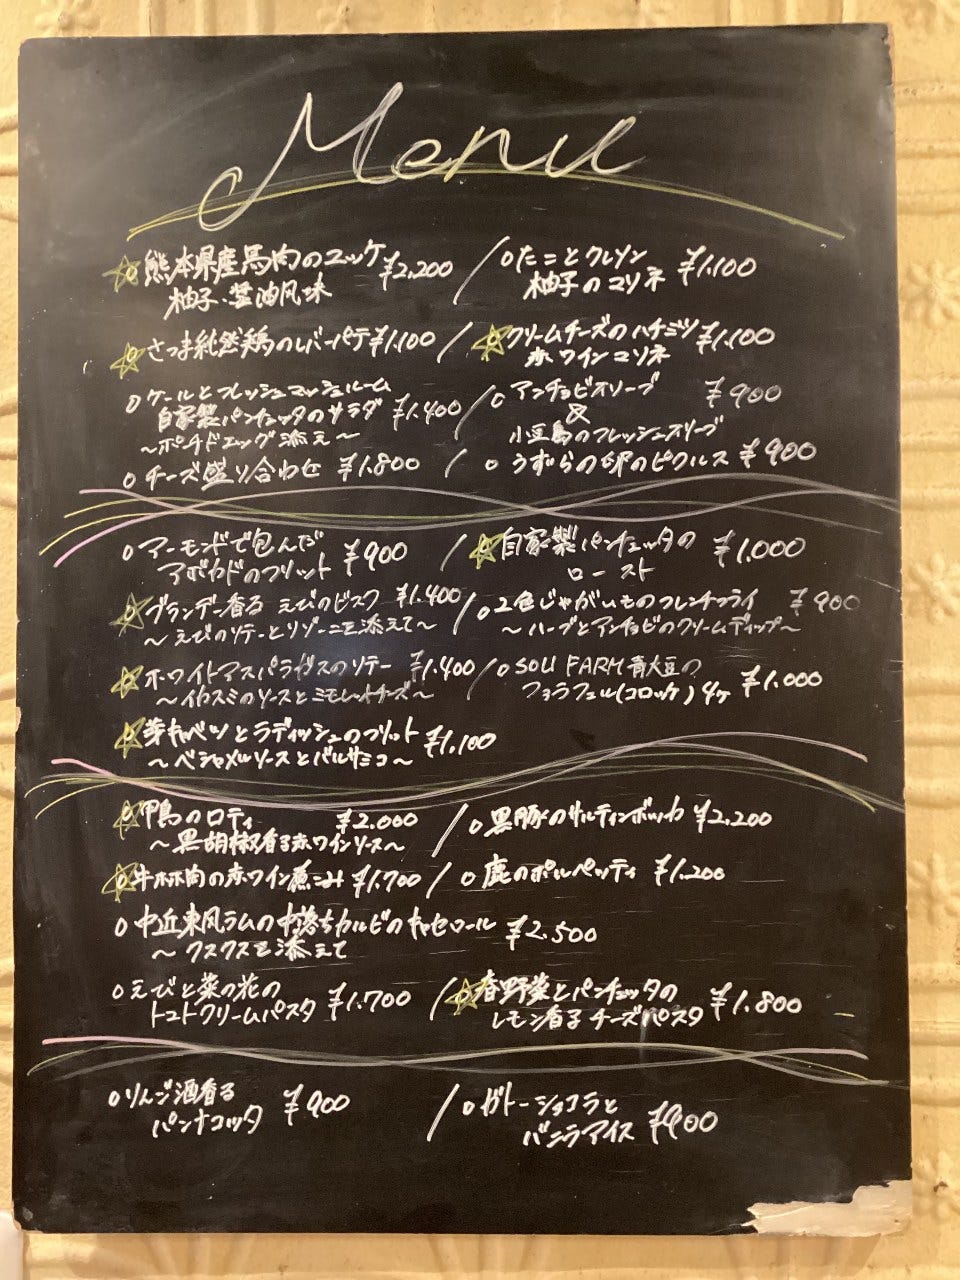 Menu
熊本県産馬肉のユッケ ¥2,200 / たことクレソン ¥1,100
柚子、醤油風味 柚子のマリネ
さつま純然鶏のレバーパテ ¥1,100 / クリームチーズのハチミツ ¥1,100
赤ワインマリネ
ケールとフレッシュマッシュルーム アンチョビオリーブ ¥900
自家製パンチェッタのサラダ ¥1,400 / &
〜ポーチドエッグ添え〜 小豆島のフレッシュオリーブ
チーズ盛り合わせ ¥1,800 / うずらの卵のピクルス ¥900
アーモンドで包んだ ¥900 / 自家製パンチェッタの ¥1,000
アボカドのフリット ロースト
ブランデー香る えびのビスク ¥1,400 / 2色じゃがいものフレンチフライ ¥900
〜えびのソテーとリゾーニを添えて〜 〜ハーブとアンチョビのクリームディップ〜
ホワイトアスパラガスのソテー ¥1,400 / SOU FARM 青大豆の ¥1,000
〜イカスミのソースとミモレットチーズ〜 ファラフェル(コロッケ) 4ヶ
芽キャベツとラディッシュのフリット ¥1,100
〜ベシャメルソースとバルサミコ〜
鴨のロティ ¥2,000 / 黒豚のサルティンボッカ ¥2,200
〜黒胡椒香る赤ワインソース〜
牛ホホ肉の赤ワイン煮こみ ¥1,700 / 鹿のポルペッティ ¥1,200
中近東風ラムの中落ちカルビのキャセロール ¥2,500
〜クスクスを添えて
えびと菜の花の ¥1,700 / 春野菜とパンチェッタの ¥1,800
トマトクリームパスタ レモン香る チーズパスタ
りんご酒香る ¥900 / ガトーショコラと ¥900
パンナコッタ バニラアイス